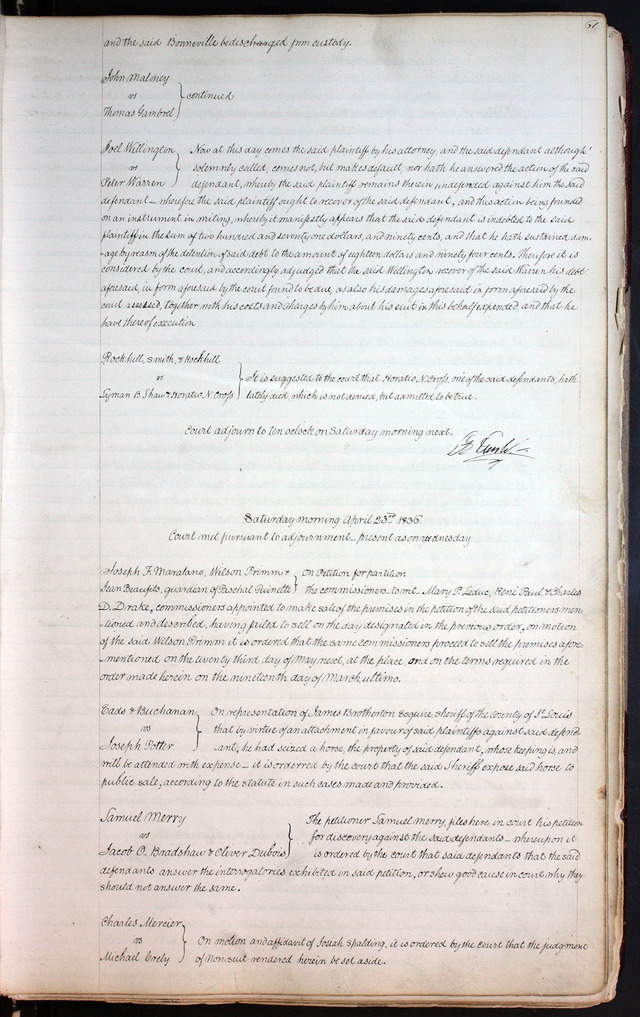 61
and the said Bonneville be discharged from custody.
John Maloney
vs
continued
Thomas Gambrel
Joel Wellington
vs
Peter Warren
Now at this day comes the said plaintiff by his attorney, and the said defendant although
solemnly called, comes not, but makes default, nor hath he answered the action of the said
defendant, whereby the said plaintiff remains therein undefended against him the said
defendant _ wherefore the said plaintiff ought to recover of the said defendant, and this action being founded
on an instrument in writing, whereby it manifestly appears that the said defendant is indebted to the said
plaintiff in the sum of two hundred and seventy one dollars, and ninety cents, and that he hath sustained dam-
age by reason of the detention of said debt to the amount of eighteen dollars and ninety four cents. Therefore it is
considered by the court, and accordingly adjudged that the said Wellington recover of the said Warren his debt
aforesaid, in form aforesaid by the court found to be due, as also his damages aforesaid in form aforesaid by the
court assessed, together with his costs and charges by him about his suit in this behalf expended, and that he
have thereof execution
Rockhill, Smith, & Rockhill
vs
Lyman B. Shaw & Horatio N. Cross
It is suggested to the court that Horatio N. Cross, one of the said defendants, hath
lately died, which is not denied, but admitted to be true.
Court adjourn to ten oclock on Saturday morning next.
Saturday morning April 23rd 1836
Court met pursuant to adjournment _ present as on wednesday
Joseph F. Maratano, Wilson Primm &
Jean Beaufils, guardian of Paschal Quinette
On Petition for partition
the commissioners _ to wit _ Mary P. Leduc, René Paul & Charles
D. Drake, commissioners appointed to make sale of the premises in the petition of the said petitioners men-
tioned and described, having failed to sell on the day designated in the previous order, on motion
of the said Wilson Primm it is ordered that the same commissioners proceed to sell the premises afore-
mentioned on the twenty third day of May next, at the place, and on the terms required in the
order made herein on the nineteenth day of March, ultimo.
Eads & Buchanan
vs
Joseph Potter
On representation of James Brotherton Esquire, Sheriff of the county of St. Louis
that by virtue of an attachment in favour of said plaintiffs against said defend
-ant, he had seized a horse, the property of said defendant, whose keeping is, and
will be attended with expense _ it is orderred by the court that the said Sheriff expose said horse to
public sale, according to the statute in such cases made and provided.
Samuel Merry
vs
Jacob O. Bradshaw & Oliver Dubois
The petitioner Samuel Merry, files here in court his petition
for discovery against the said defendants _ whereupon it
is ordered by the court that said defendants that the said
defendants answer the interrogatories exhibited in said petition, or shew good cause in court why they
should not answer the same.
Charles Mercier
vs
Michael Crely
On motion and affidavit of Josiah Spalding, it is ordered by the court that the judgment
of Nonsuit rendered herein be set aside.